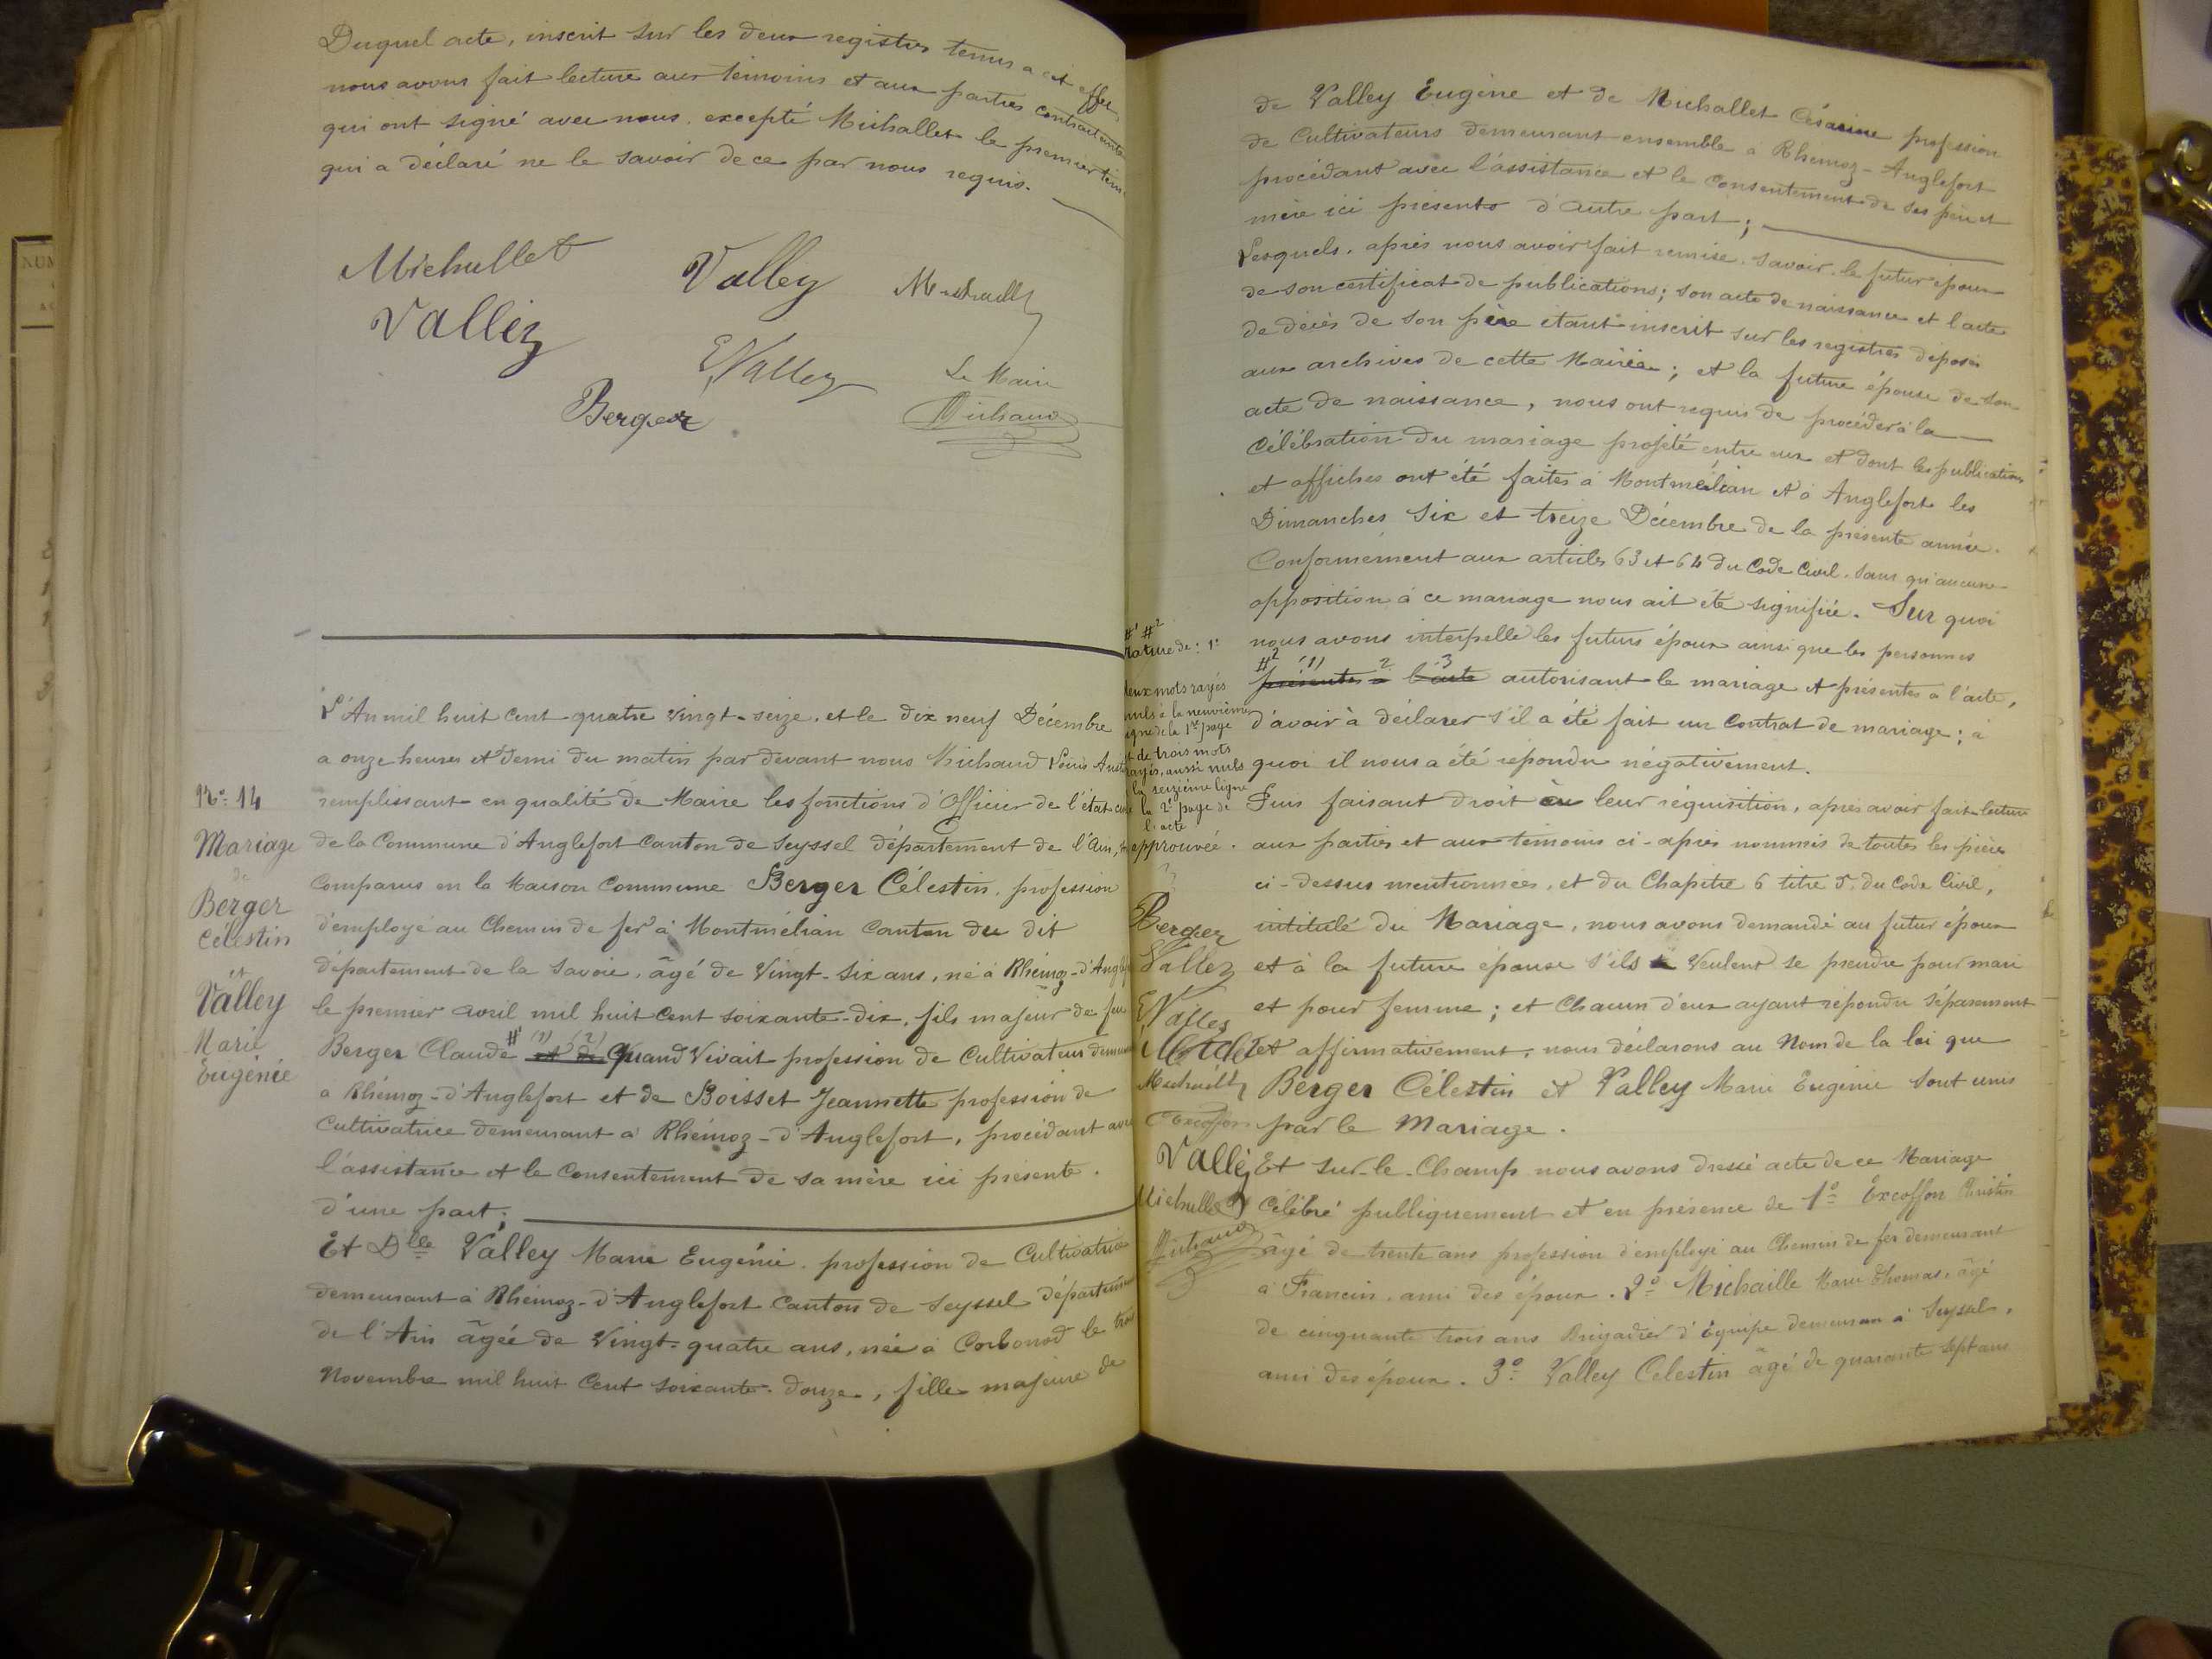 Duquel acte, inscrit sur les deux registres tenus a cet effet,
nous avons fait lecture aux témoins et aux parties contractantes
qui ont signé avec nous. excepté Michallet le premier tém.
qui a déclaré ne le savoir de ce par nous requis.
Michallet Valley
Valley
E, Valley Le Maire
Berger Michaud
L'An mil huit cent quatre vingt-seize, et le dix neuf Décembre
a onze heures et demi du matin par devant nous Michaud Louis
remplissant en qualité de Maire les fonctions d'Officier de l'état-civ
de la Commune d'Anglefort Canton de Seyssel département de l'Ain,
comparus en la Maison Commune Berger Célestin, profession
d'employé au Chemin de fer à Montmélian Canton du dit
département de la Savoie, âgé de Vingt-six ans, né à Rhémoz-d'Anglef
le premier avril mil huit cent soixante-dix, fils majeur de feu
Berger Claude #1 (1) et (2) de Quand Vivait profession de Cultivateur
a Rhémoz-d'Anglefort et de Boisset Jeannette profession de
Cultivatrice demeurant à Rhémoz-d'Anglefort, procédant avec
l'assistance et le Consentement de sa mère ici présente.
d'une part;
Et Dlle Valley Marie Eugénie. profession de Cultivatrice
demeurant à Rhémoz-d'Anglefort Canton de Seyssel département
de l'Ain âgée de Vingt-quatre ans, née à Corbonod le trois
Novembre mil huit Cent soixante-douze, fille majeure de
No 14
Mariage
de
Berger
Célestin
et
Valley
Marie
Eugénie
de Valley Eugène et de Michallet Césarine profession
de Cultivateurs demeurant ensemble a Rhémoz-Anglefort
procédant avec l'assistance et le Consentement de ses père et
mère ici présents d'autre part;
Lesquels, après nous avoir fait remise, savoir, le futur époux
de son certificat de publications; son acte de naissance et l'acte
de décès de son père étant inscrit sur les registres déposés
aux archives de cette Mairie; et la future épouse de son
acte de naissance, nous ont requis de procéder à la
Célébration du mariage projeté entre eux et dont les publications
et affiches ont été faites à Montmélian et à Anglefort les
Dimanches Six et treize Décembre de la présente année.
Conformément aux articles 63 et 64 du Code Civil. Sans qu'aucune
opposition à ce mariage nous ait été signifiée. Sur quoi
nous avons interpellé les futurs époux ainsi que les personnes
#2 (1) présentes 2 a 3 l'acte autorisant le mariage et présentes a l'acte,
d'avoir à déclarer s'il a été fait un Contrat de mariage; à
quoi il nous a été répondu négativement.
Puis faisant droit à leur réquisition, après avoir fait lecture
aux parties et aux témoins ci-après nommés de toutes les pièces
ci-dessus mentionnées, et du Chapitre 6 titre 5 du Code Civil,
intitulé du Mariage, nous avons demandé au futur époux
et à la future épouse s'ils Veulent se prendre pour mari
et pour femme; et Chacun d'eux ayant répondu séparement
et affirmativement, nous déclarons au Nom de la loi que
Berger Célestin et Valley Marie Eugénie sont unis
par le Mariage.
Et sur-le-Champ nous avons dressé acte de ce Mariage
Célébré publiquement et en présence de 1o Excoffon
âgé de trente ans profession d'employé au Chemin de fer demeurant
à Francin, ami des époux. 2o Michaille Marie Thomas, âgé
de cinquante trois ans Brigadier d'Equipe demeuran à Seyssel,
ami des époux. 3o Valley Celestin âgé de quarante sept ans
#1 #2
rature de: 1o
deux mots rayés
nuls à la neuvième
ligne de la 1re page
et de trois mots
rayés, aussi nuls
la seizième ligne
la 2e page de
l'acte
approuvée.
Berger
Valley
E, Valley
Excoffon
Valley
Michallet
Michaud